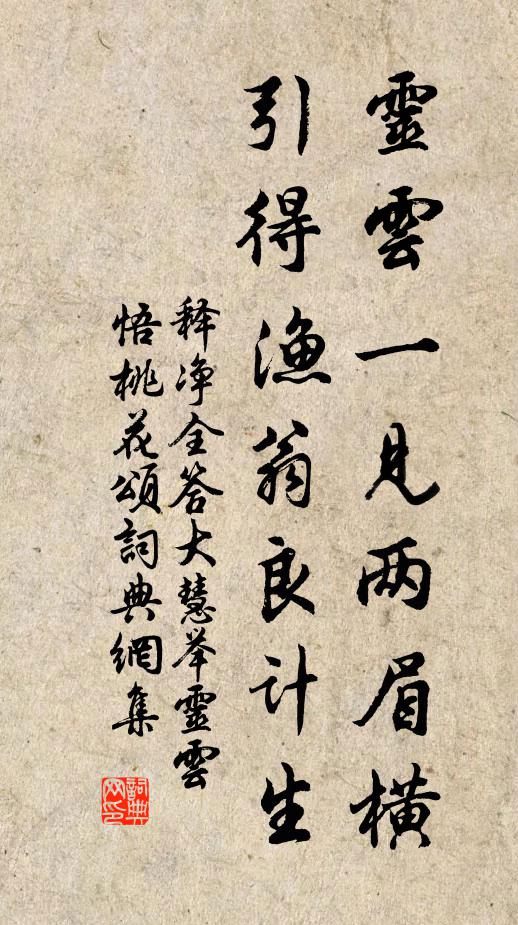 靈雲一見两眉橫
引得漁翁良計生
释净全答大慧举靈雲
悟桃花頌詞典網集
詞典
网印